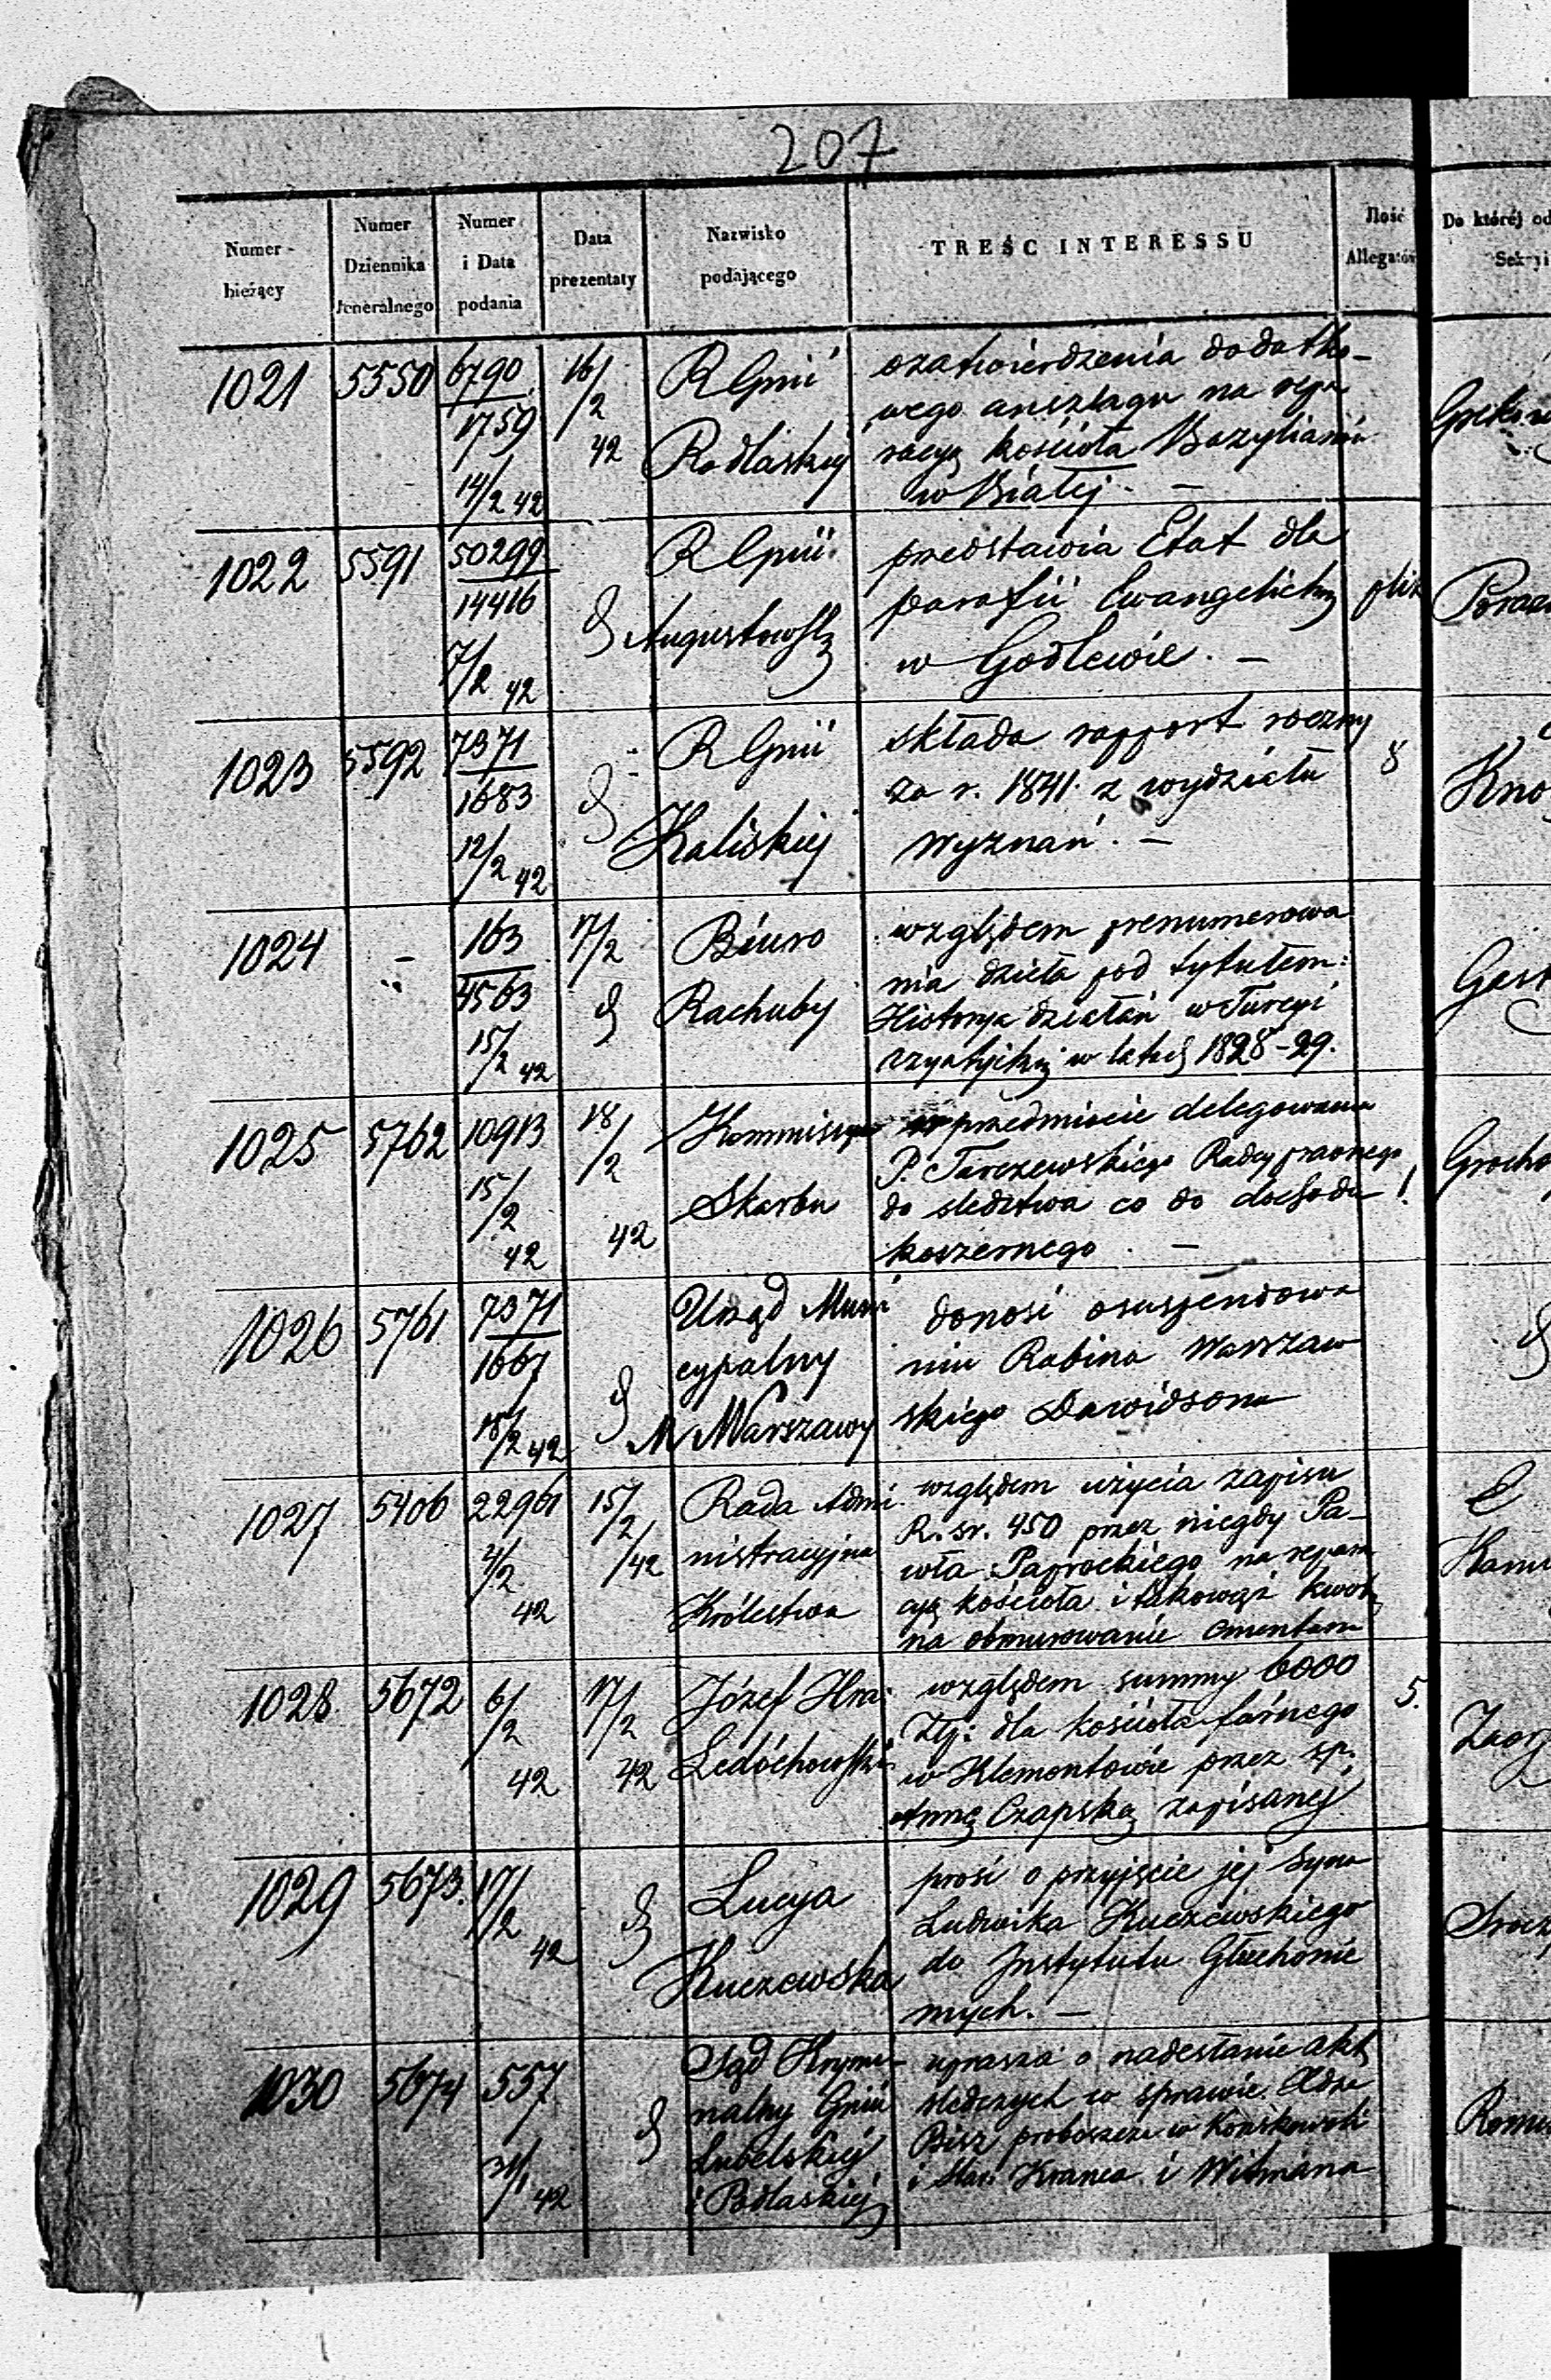 207
Numer
bieżący
Numer
Dziennika
Jeneralnego
Numer
i Data
podania
Data
prezentaty
Nazwisko
podającego
TREŚC INTERESSU
Ilość
Allegatów
Do której od
Sekcyi
1021
5550
6790
1759
14/2 42
16/2
42
R Gnii
Podlaskiej
ozatwierdzenia dodatko-
wego anszlagu na repa
racyą kościoła Bazylianów
w Białej. -
1022
5591
50299
14416
7/2 42
R Gnii
Augustowsk
przedstawia Etat dla
parafii Ewangelickiej
w Godlewie. -
plik
1023
5592
7371
1683
12/2 42
R Gnii
Kaliskiej
składa rapport roczny
za r. 1841. z wydziału
Wyznań. -
8
1024
-
163
4563
15/2 42
17/2
Biuro
Rachuby
względem prenumerowa
nia dzieła pod tytułem:
Historya działań w Turcyi
Azyatyckiej w latach 1828-29.
1025
5762
10913
15/2
42
18/2
42
Kommissya
Skarbu
w przedmiocie delegowania
P. Tarczewskiego Radcy prawnego
do śledztwa co do dochodu
koszernego. -
1026
5761
7371
1667
18/2 42
Urząd Muni
cypalny
M Warszawy
donosi osuspendowa
niu Rabina Warszaw
skiego Dawidsona
1027
5406
22961
2/2
42
15/2
/42
Rada Admi
nistracyjna
Królestwa
względem użycia zapisu
R. sr. 450 przez niegdy Pa-
wła Paprockiego na repara
cyą kościoła i takowąż kwotę
na obmurowanie Cmentarza
1028
5672
6/2
42
17/2
42
Józef Hra:
Ledóchowski
względem summy 6000
Złp: dla kościoła farnego
w Klemontowie przez śp.
Annę Czapską zapisanej
5.
1029
5673.
17/2
42
Lucya
Kuczewska
prosi o przyjęcie jej Syna
Ludwika Kuczewskiego
do Instytutu Głuchonie
mych. -
1030
5674
557
31/1 42
Sąd Krymi-
nalny Gnii
Lubelskiej
i Podlaskiej
uprasza o nadesłanie akt
śledczych w sprawie Xdza
Bisz proboszcza w Końskowoli
i Star. Kranca i Witmana